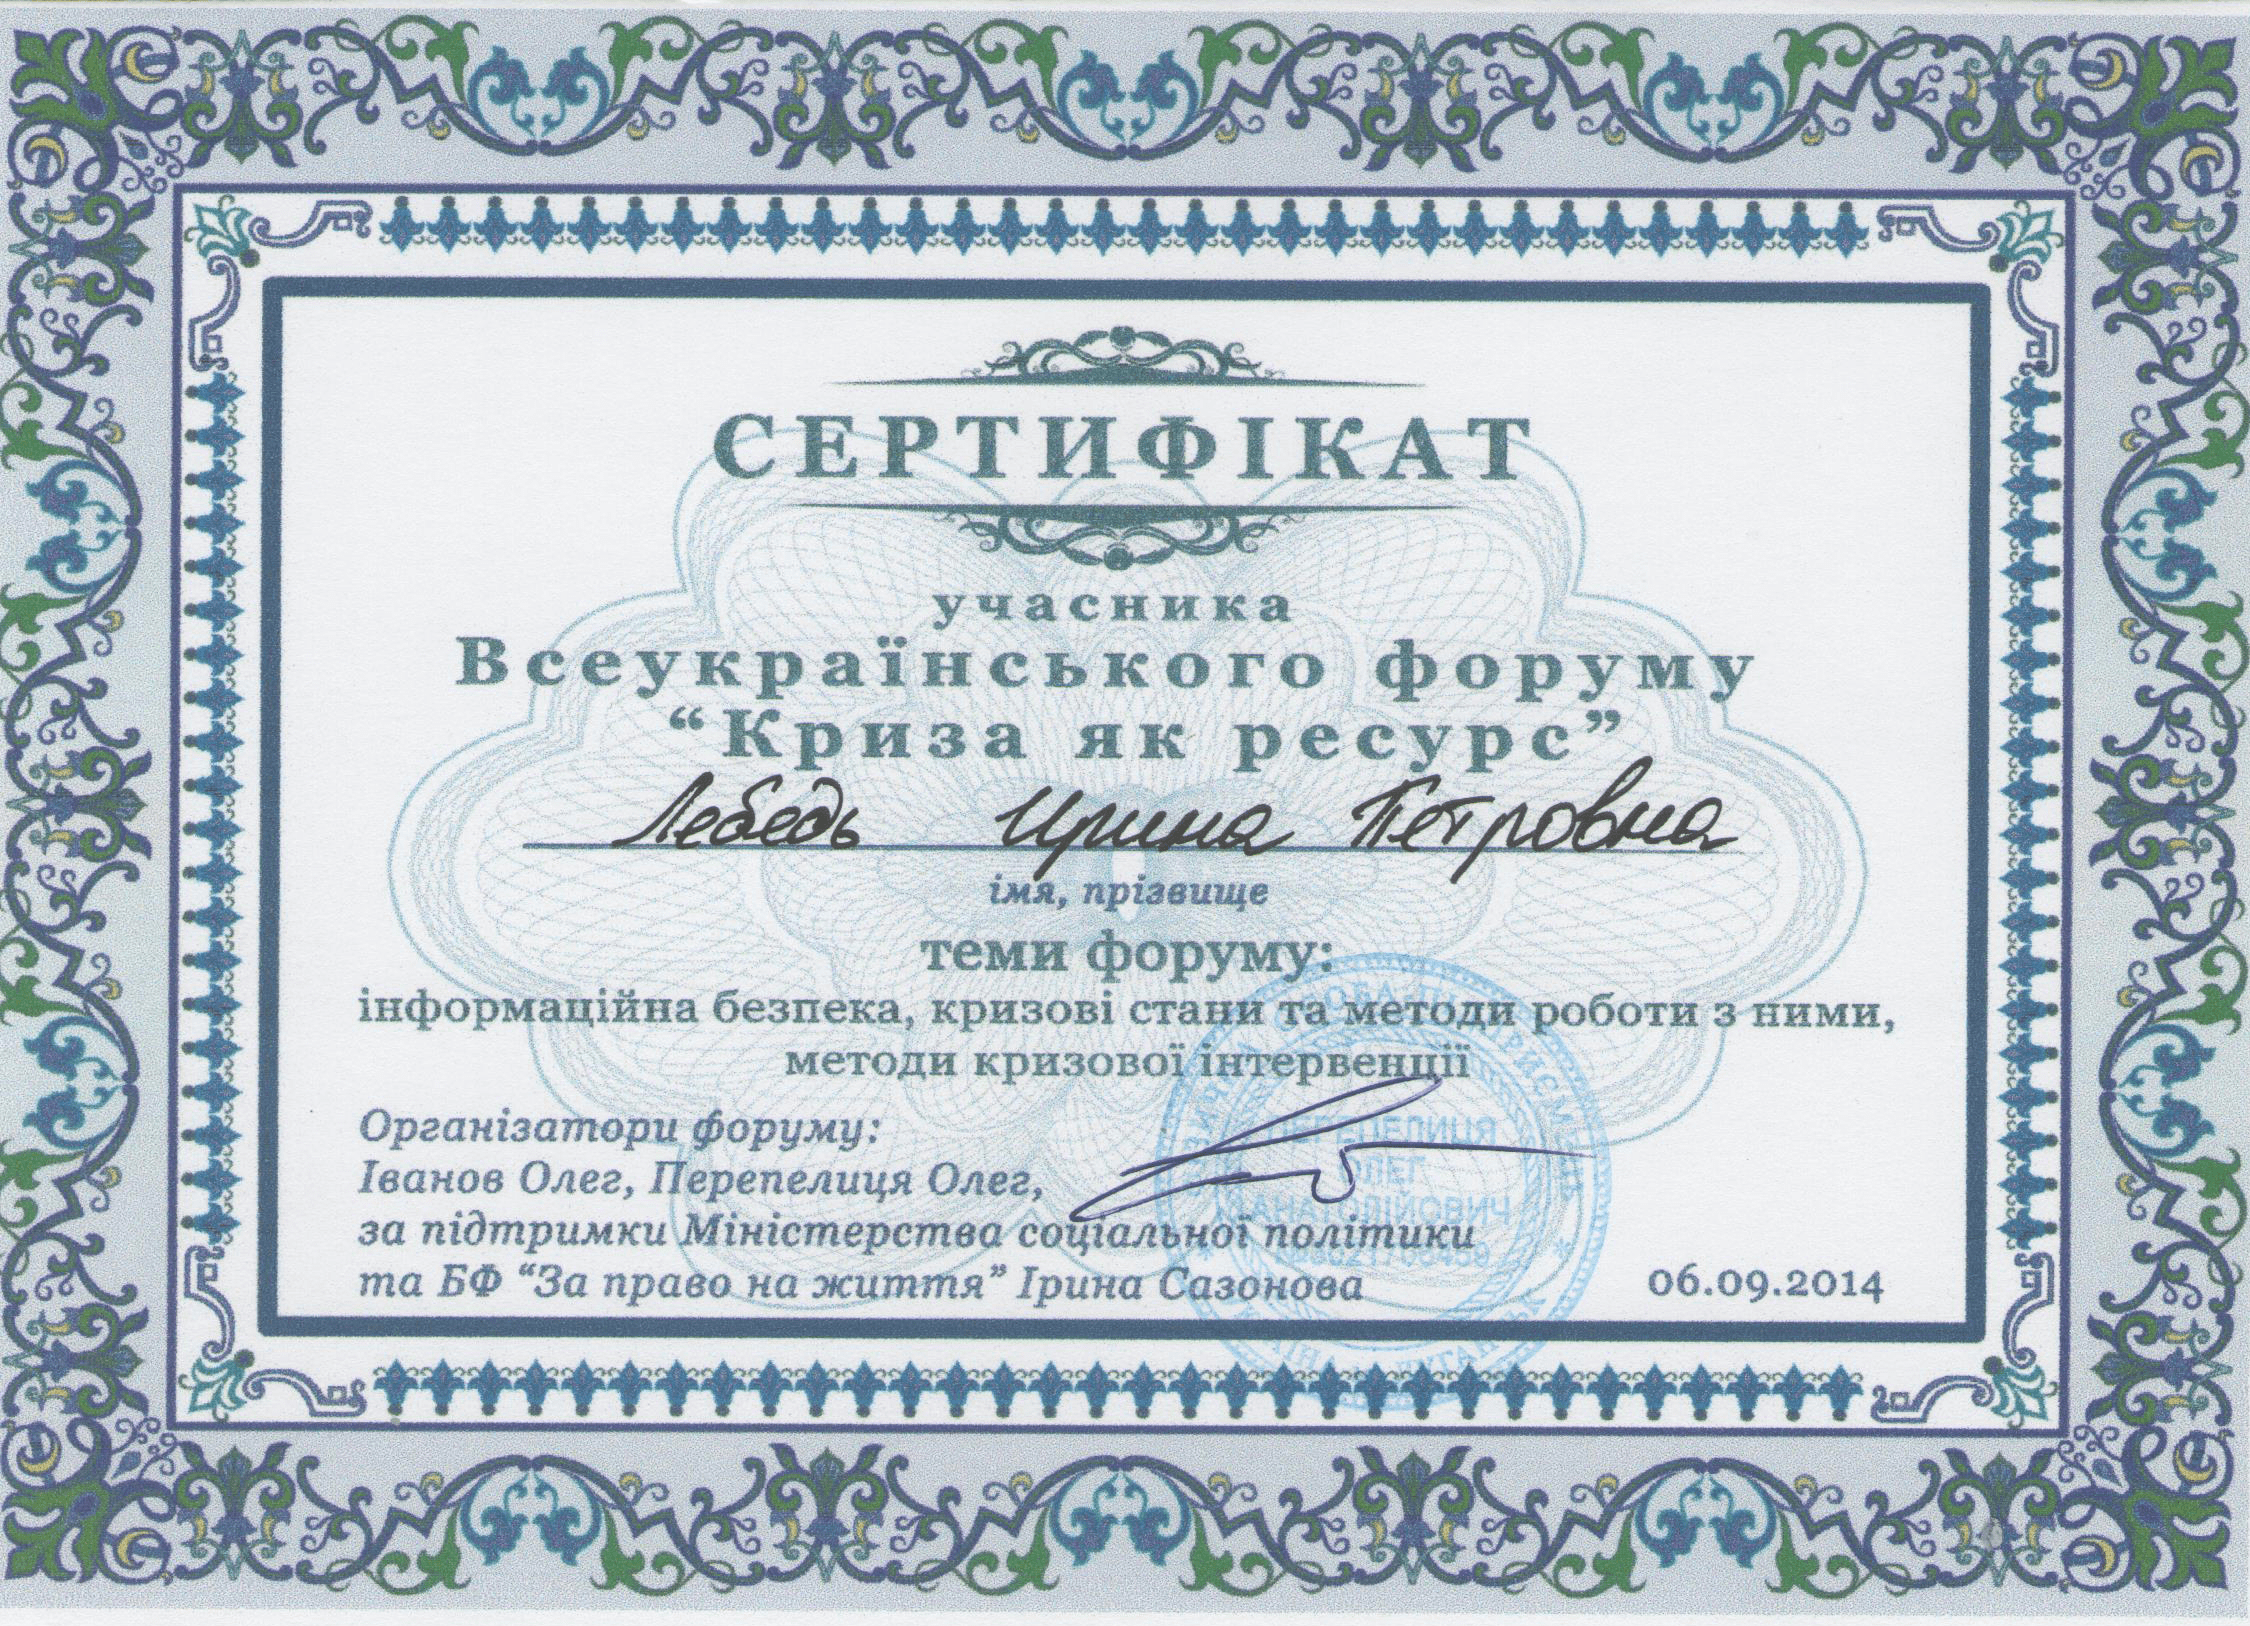 СЕРТИФІКАТ
учасника
Всеукраїнського форуму
“Криза як ресурс”
Лебедь Ирина Петровна
імя, прізвище
теми форуму:
інформаційна безпека, кризові стани та методи роботи з ними,
методи кризової інтервенції
Організатори форуму:
Іванов Олег, Перепелиця Олег,
за підтримки Міністерства соціальної політики
та БФ “За право на життя” Ірина Сазонова
06.09.2014
ПЕРЕПЕЛИЦЯ
ОЛЕГ
АНАТОЛІЙОВИЧ